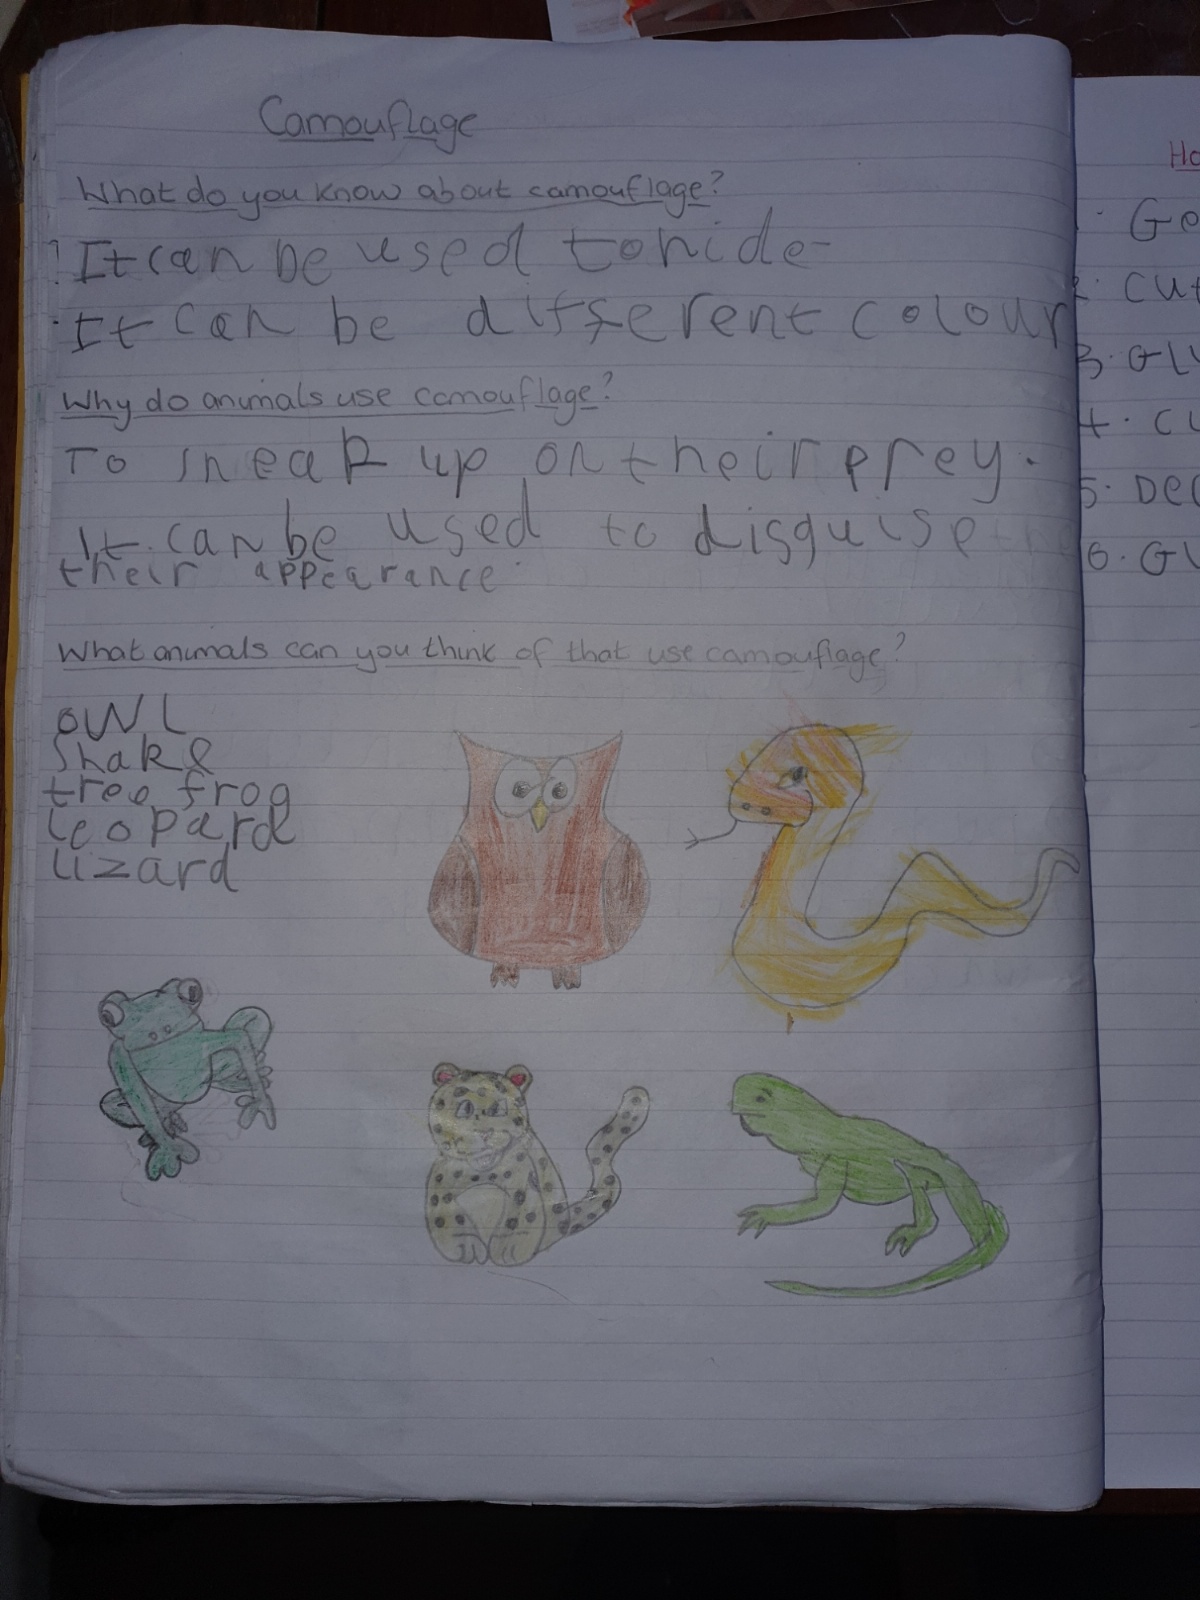 Camouflage
What do you know about camouflage?
It can be used to hide
It can be different colour
Why do animals use camouflage?
To sneak up on their prey.
It can be used to disguise
their appearance.
What animals can you think of that use camouflage?
owl
snake
tree frog
leopard
lizard
Ge
2. cut
3. Gl
4. Cu
5. Dec
6. Gl